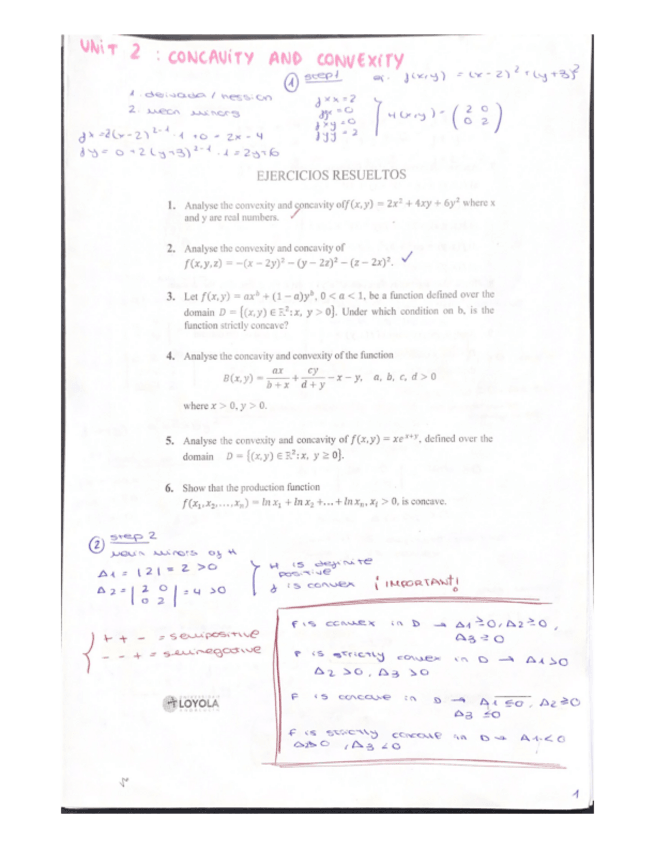 UNIT 2 : CONCAVITY AND CONVEXITY
① step1 ej. f(x,y) = (x-2)² + (y+3)²
1. derivada / hessian
2. main minors
fxx = 2
fyx = 0
fxy = 0
fyy = 2
H(x,y) = ( 2 0
0 2 )
fx = 2(x-2)²⁻¹ · 1 + 0 = 2x - 4
fy = 0 + 2(y+3)²⁻¹ · 1 = 2y+6
EJERCICIOS RESUELTOS
1. Analyse the convexity and concavity of f(x,y) = 2x² + 4xy + 6y² where x
and y are real numbers.
2. Analyse the convexity and concavity of
f(x,y,z) = −(x − 2y)² − (y − 2z)² − (z − 2x)². ✓
3. Let f(x,y) = axᵇ + (1 − a)yᵇ, 0 < a < 1, be a function defined over the
domain D = {(x,y) ∈ ℝ²: x, y > 0}. Under which condition on b, is the
function strictly concave?
4. Analyse the concavity and convexity of the function
B(x,y) = ax/(b + x) + cy/(d + y) − x − y, a, b, c, d > 0
where x > 0, y > 0.
5. Analyse the convexity and concavity of f(x,y) = xeˣ⁺ʸ, defined over the
domain D = {(x,y) ∈ ℝ²: x, y ≥ 0}.
6. Show that the production function
f(x₁,x₂,…,xₙ) = ln x₁ + ln x₂ +…+ ln xₙ, xᵢ > 0, is concave.
② step 2
main minors of H
Δ1 = |2| = 2 > 0
Δ2 = | 2 0
0 2 | = 4 > 0
H is definite
positive
f is convex
¡ IMPORTANT!
+ + - = semipositive
- - + = seminegative
F is convex in D → Δ1 ≥ 0, Δ2 ≥ 0,
Δ3 ≥ 0
F is strictly convex in D → Δ1 > 0
Δ2 > 0, Δ3 > 0
F is concave in D → Δ1 ≤ 0, Δ2 ≥ 0
Δ3 ≤ 0
F is strictly concave in D → Δ1 < 0
, Δ3 < 0
LOYOLA
1